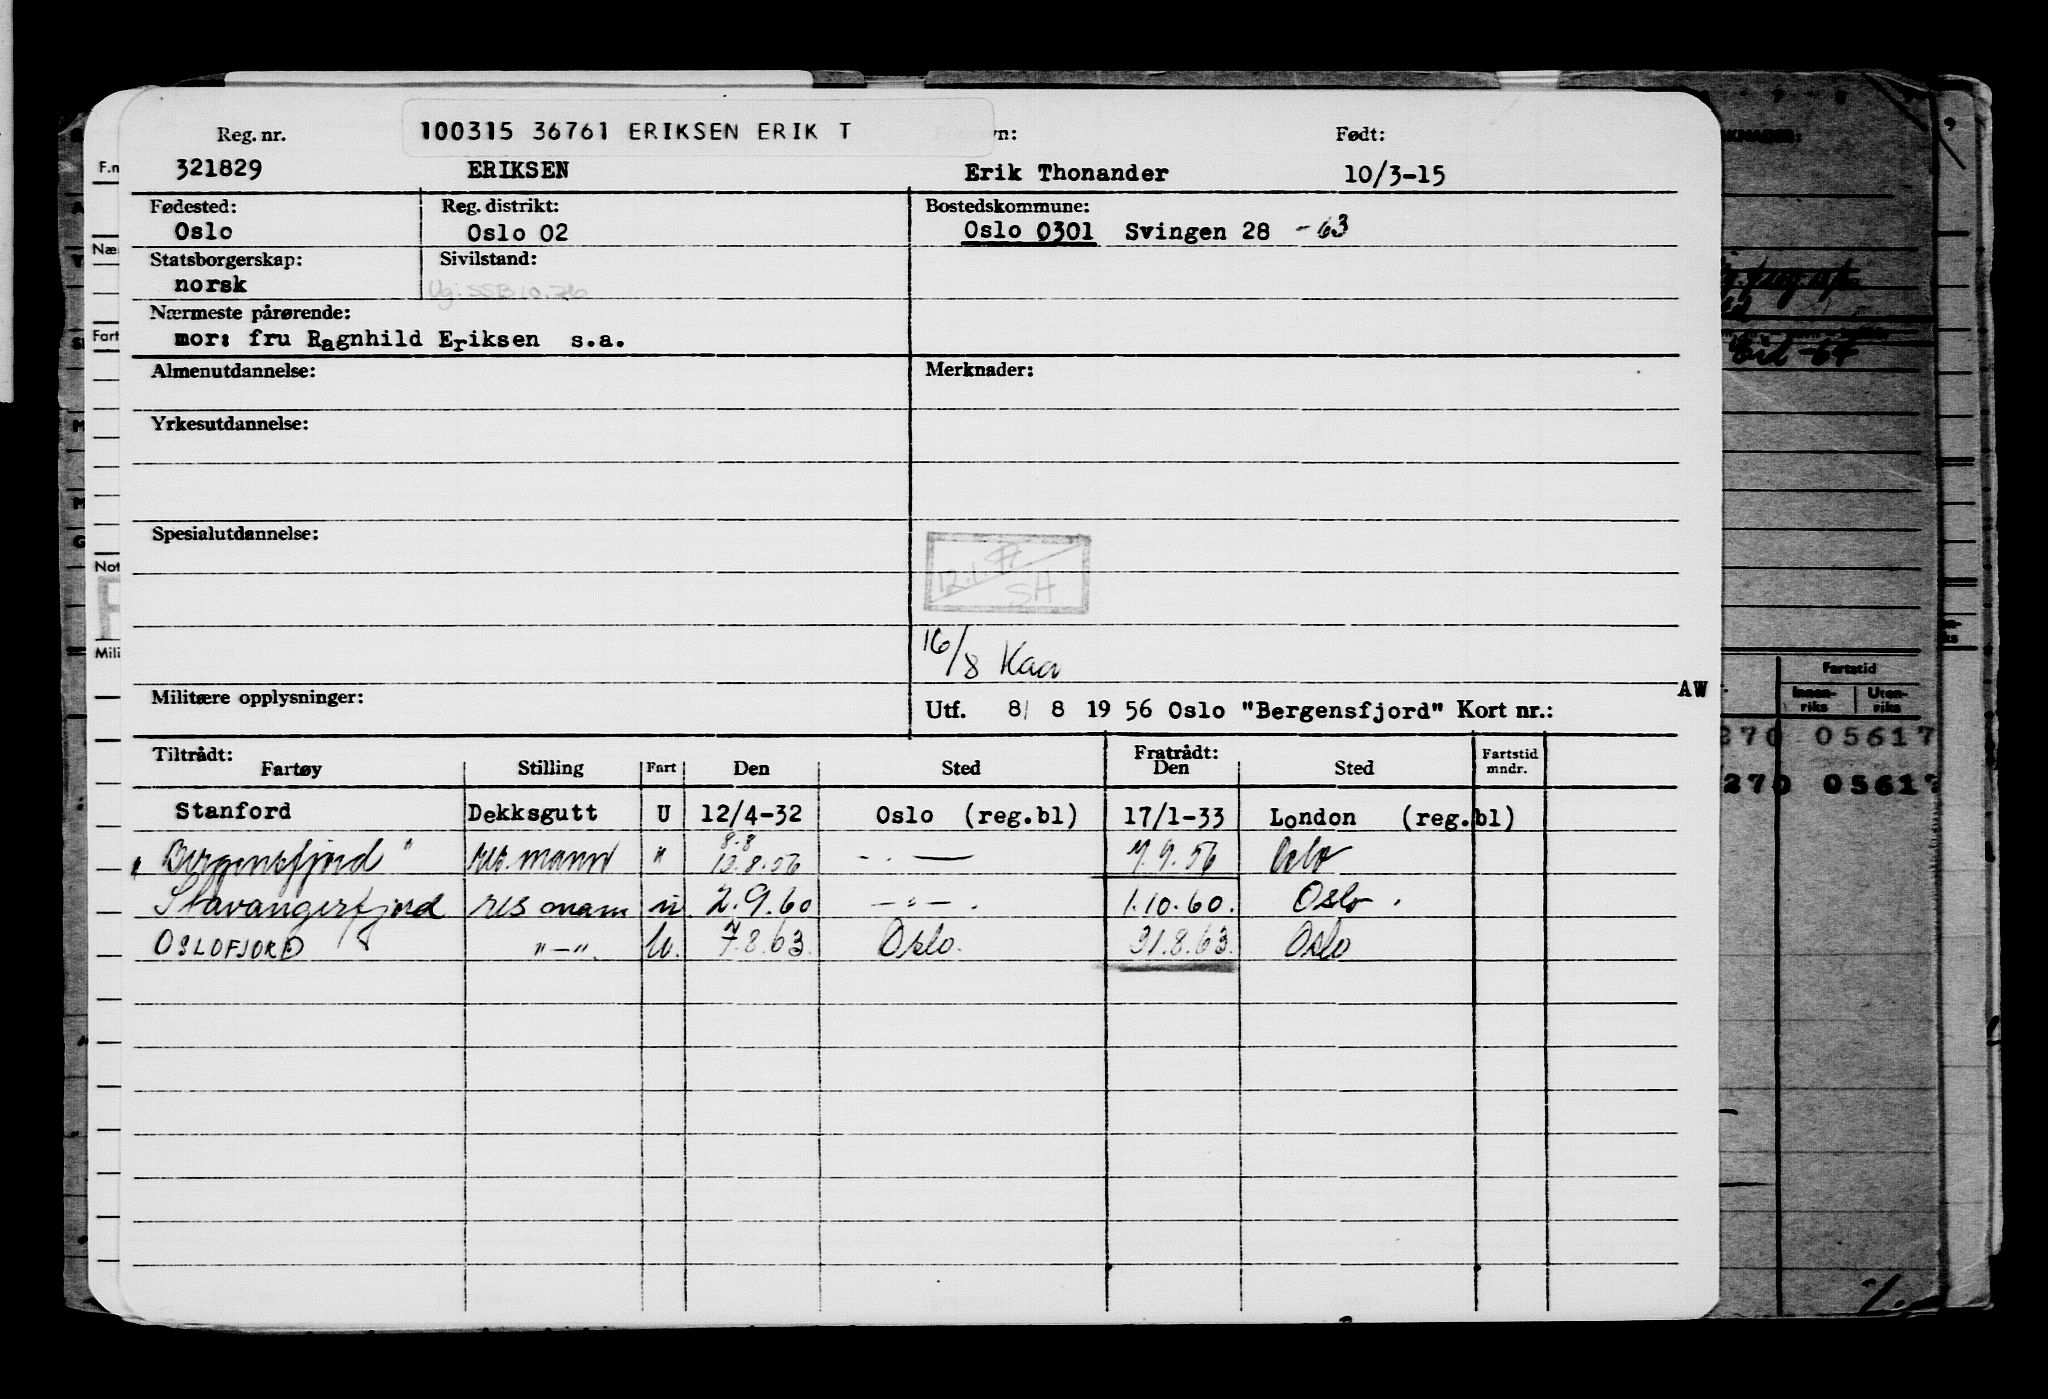 Reg. nr. 100315 36761 ERIKSEN ERIK T Født:
321829 ERIKSEN Erik Thonander 10/3-15
Fødested: Reg. distrikt: Bostedskommune:
Oslo Oslo 02 Oslo 0301 Svingen 28 -63
Statsborgerskap: Sivilstand:
norsk
Nærmeste pårørende:
mor: fru Ragnhild Eriksen s.a.
Almenutdannelse: Merknader:
Yrkesutdannelse:
Spesialutdannelse:
SH
16/8 Kaa
AW
Militære opplysninger: Utf. 8/ 8 19 56 Oslo "Bergensfjord" Kort nr.:
Tiltrådt: Fratrådt:
Fartøy Stilling Fart Den Sted Den Sted Fartstid mndr.
Stanford Dekksgutt U 12/4-32 Oslo (reg.bl) 17/1-33 London (reg.bl)
8.8
"Bergensfjord" res. mann " 13.8.56 - . — 7.9.56 Oslo
Stavangerfjord res mann u 2.9.60 — " — . 1.10.60. Oslo .
OSLOFJORD "—". U. 7.8.63. Oslo. 31.8.63. Oslo
Fartstid
Innen-riks Uten-riks
270 05617
270 05617